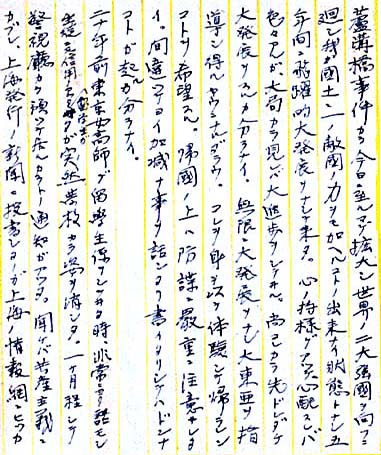 蘆溝橋事件カラ今日ニ至ルマデ拡大シ世界ノ二大強國ヲ向フニ
廻シ我ガ國土ニ一ノ敵國ノ力ヲモ加ヘルコト出来ナイ状態トナシ五
年間ニ飛躍的大発展ヲナシテ来タ。心ノ持様デアツテ心配セバ
色々アルガ、大局カラ見レバ大進歩ヲシテヰル。尚コレカラ先ドレダケ
大発展ヲスルカ分ラナイ。無限ニ大発展ヲナシ大東亜ヲ指
導シ得ルヤウニナルダラウ。コレヲ身ヲ以テ体験シテ帰ラン
コトヲ希望スル。帰國ノ上ハ防諜ニ厳重ニ注意サレタ
イ。間違ツテヨイ加減ナ事ヲ話シタリ書イタリシテハドンナ
コトガ起ルカ分ラナイ。
二十年前東京女高師デ留學生係ヲシテヰタ時非常ニヨク話モシ
生徒モ信用
突然学校カラ姿ヲ消シタ。一ケ月程シテ
警視廳カラ
通知ガアツタ。聞ケバ共産主義ニ
カブレ、上海発行ノ新聞ニ投書シタノガ上海ノ情報網ニヒツカ